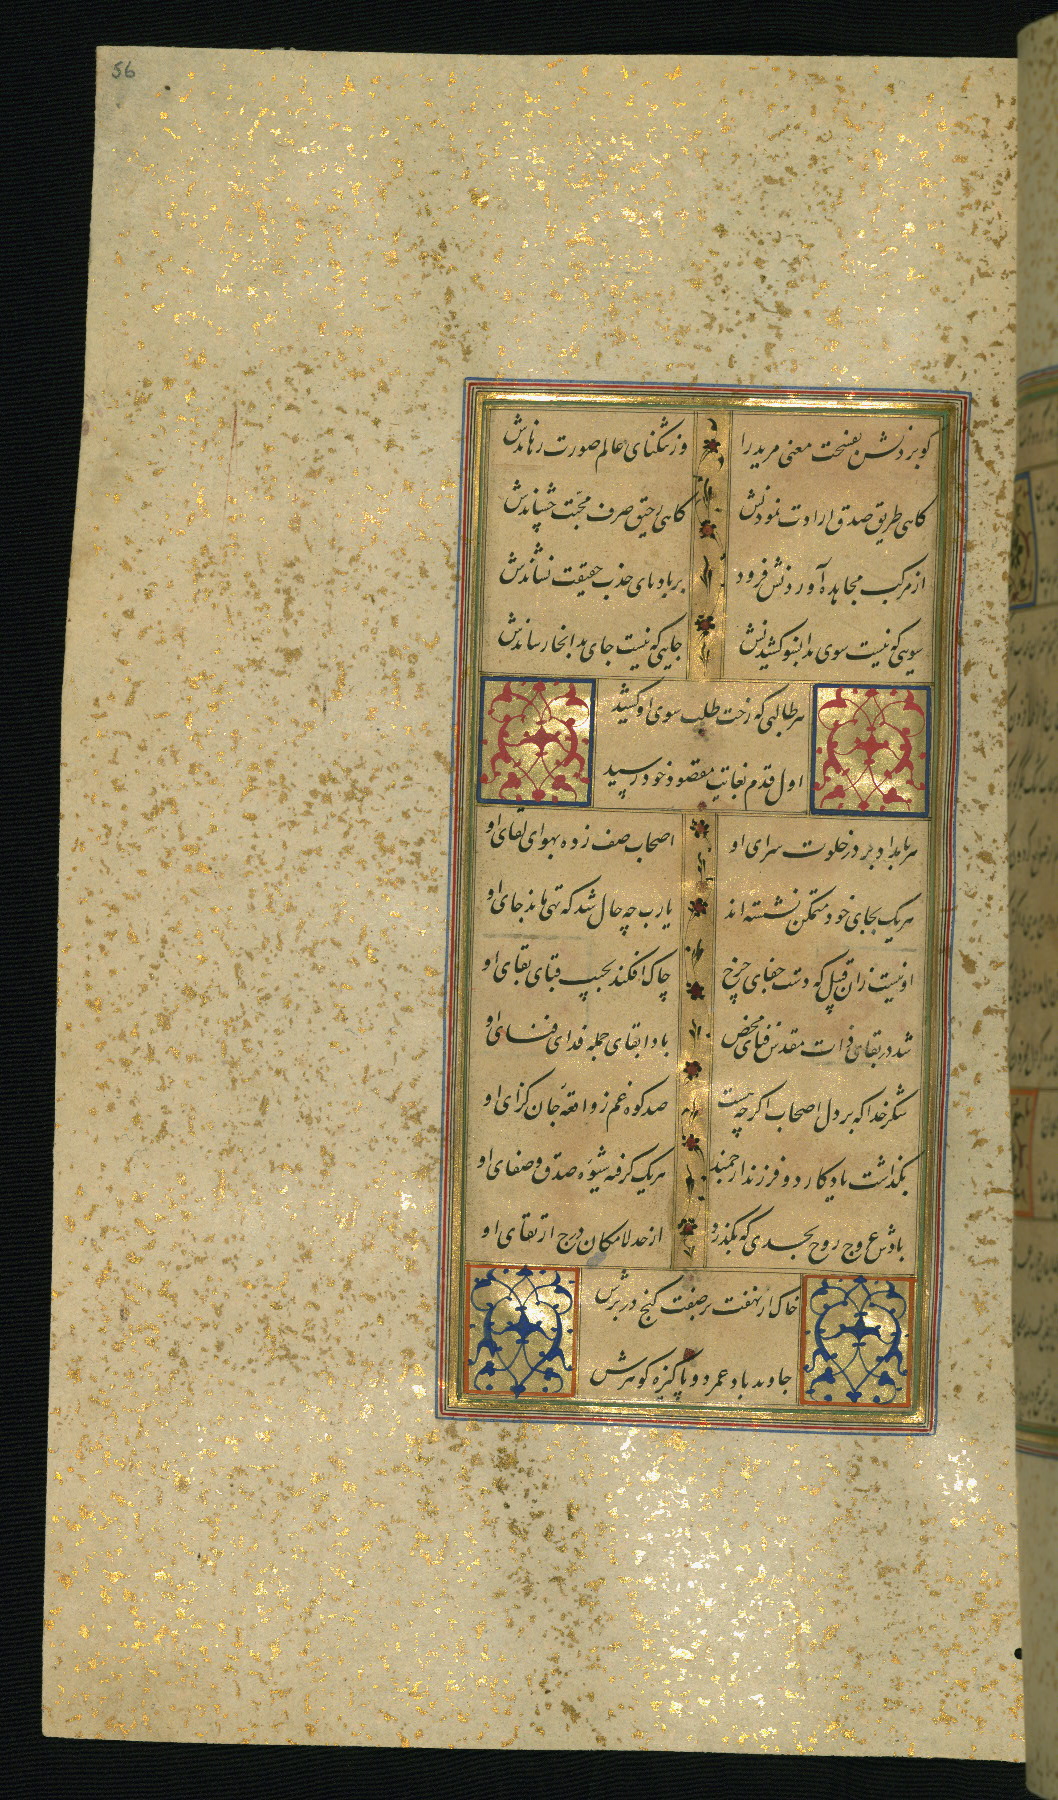 56
کو بردنش بفسحت معنی مرید را وز تنکنای عالم صورت رهاندش
کاهی طریق صدق ارادت نمودنش کاهی رحیق صرف محبت چشاندش
از مرکب مجاهده آوردنش فرود بر بادپای جذب حقیقت نشاندش
سویی که نیست سوی بدانسو کشیدنش جایی که نیست جای بدانجا رساندش
هر طالبی که رخت طلب سوی او کشید
اول قدم بغایت مقصود خود رسید
هر بامداد بر در خلوت سرای او اصحاب صف زده بهوای لقای او
هریک بجای خود متمکن نشسته اند یارب چه حال شد که تهی ماند جای او
او نیست زان قبل که دست جفای چرخ چاک افکند بجیب قبای بقای او
شد در بقای ذات مقدس فنای محض بادا بقای جمله فدای فنای او
شکر خدا که بر دل اصحاب اکرچه هست صد کوه غم ز واقعه جان کزای او
بکذاشت یادکار دو فرزند ارجمند هریک کرفته شیوه صدق و صفای او
بادش عروج روح بحدی که بکذرد از حد لامکان درج ارتقای او
خاک ار نهفت بر صفت کنج در برش
جاوید باد عمر دو پاکیزه کوهرش